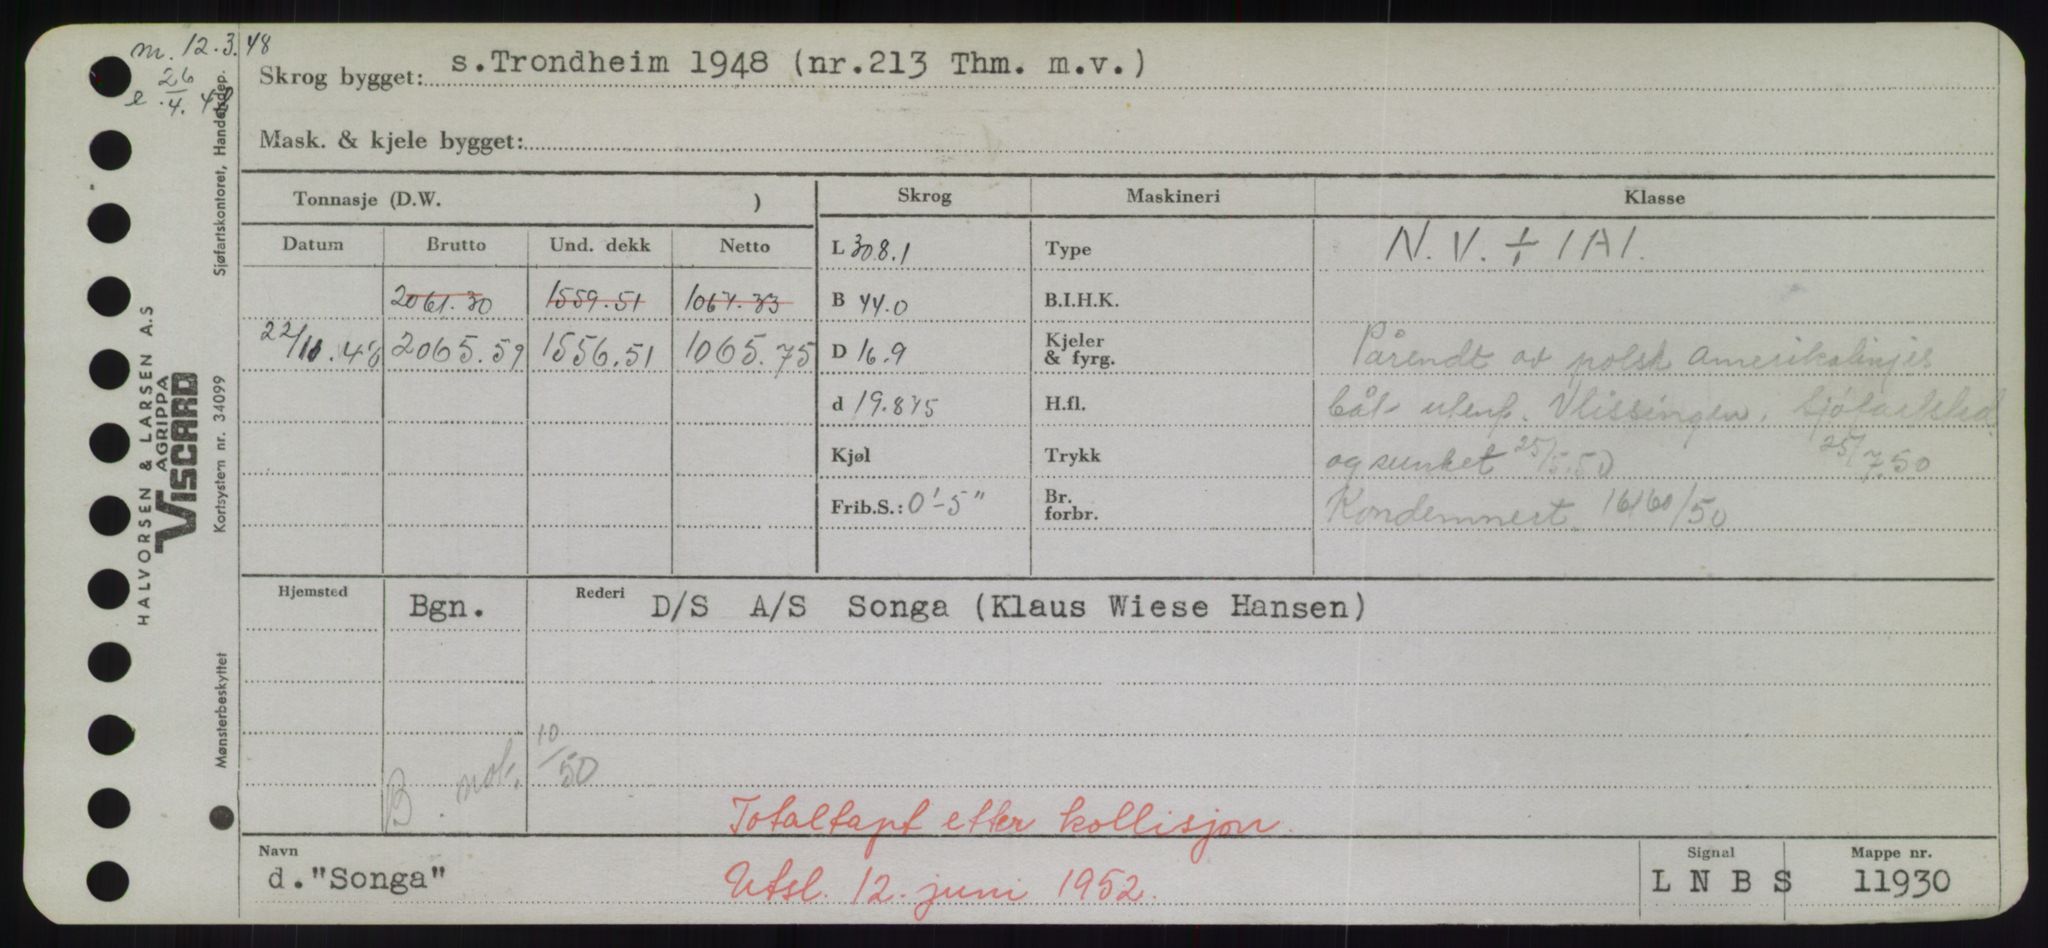 m. 12.3.48
e. 26/4. 48
Skrog bygget: s.Trondheim 1948 (nr.213 Thm. m.v.)
Mask. & kjele bygget:
Tonnasje (D.W. )
Skrog
Maskineri
Klasse
Datum Brutto Und. dekk Netto
L 308.1
Type
N. V. + 1A1.
2061.30 1559.51 1067.33
B 44.0
B.I.H.K.
22/11.48 2065.59 1556.51 1065.75
D 16.9
Kjeler
& fyrg.
Pårendt av polsk Amerikalinjes
d 19.875
H.fl.
båt utenf. Vlissingen. Sjøfartsted
25/7.50
Kjøl
Trykk
og sunket 25/5.50
Frib.S.: 0'-5"
Br.
forbr.
Kondemnert
Hjemsted Bgn.
Rederi D/S A/S Songa (Klaus Wiese Hansen)
B. not. 10/50
Totaltapt etter kollisjon.
Utsl. 12. juni 1952.
Navn
d. "Songa"
Signal
L N B S
Mappe nr.
11930
Sjøfartskontoret, Handelsdep.
Kortsystem nr. 34099
Mønsterbeskyttet
HALVORSEN & LARSEN A.S
AGRIPPA
VISCARD